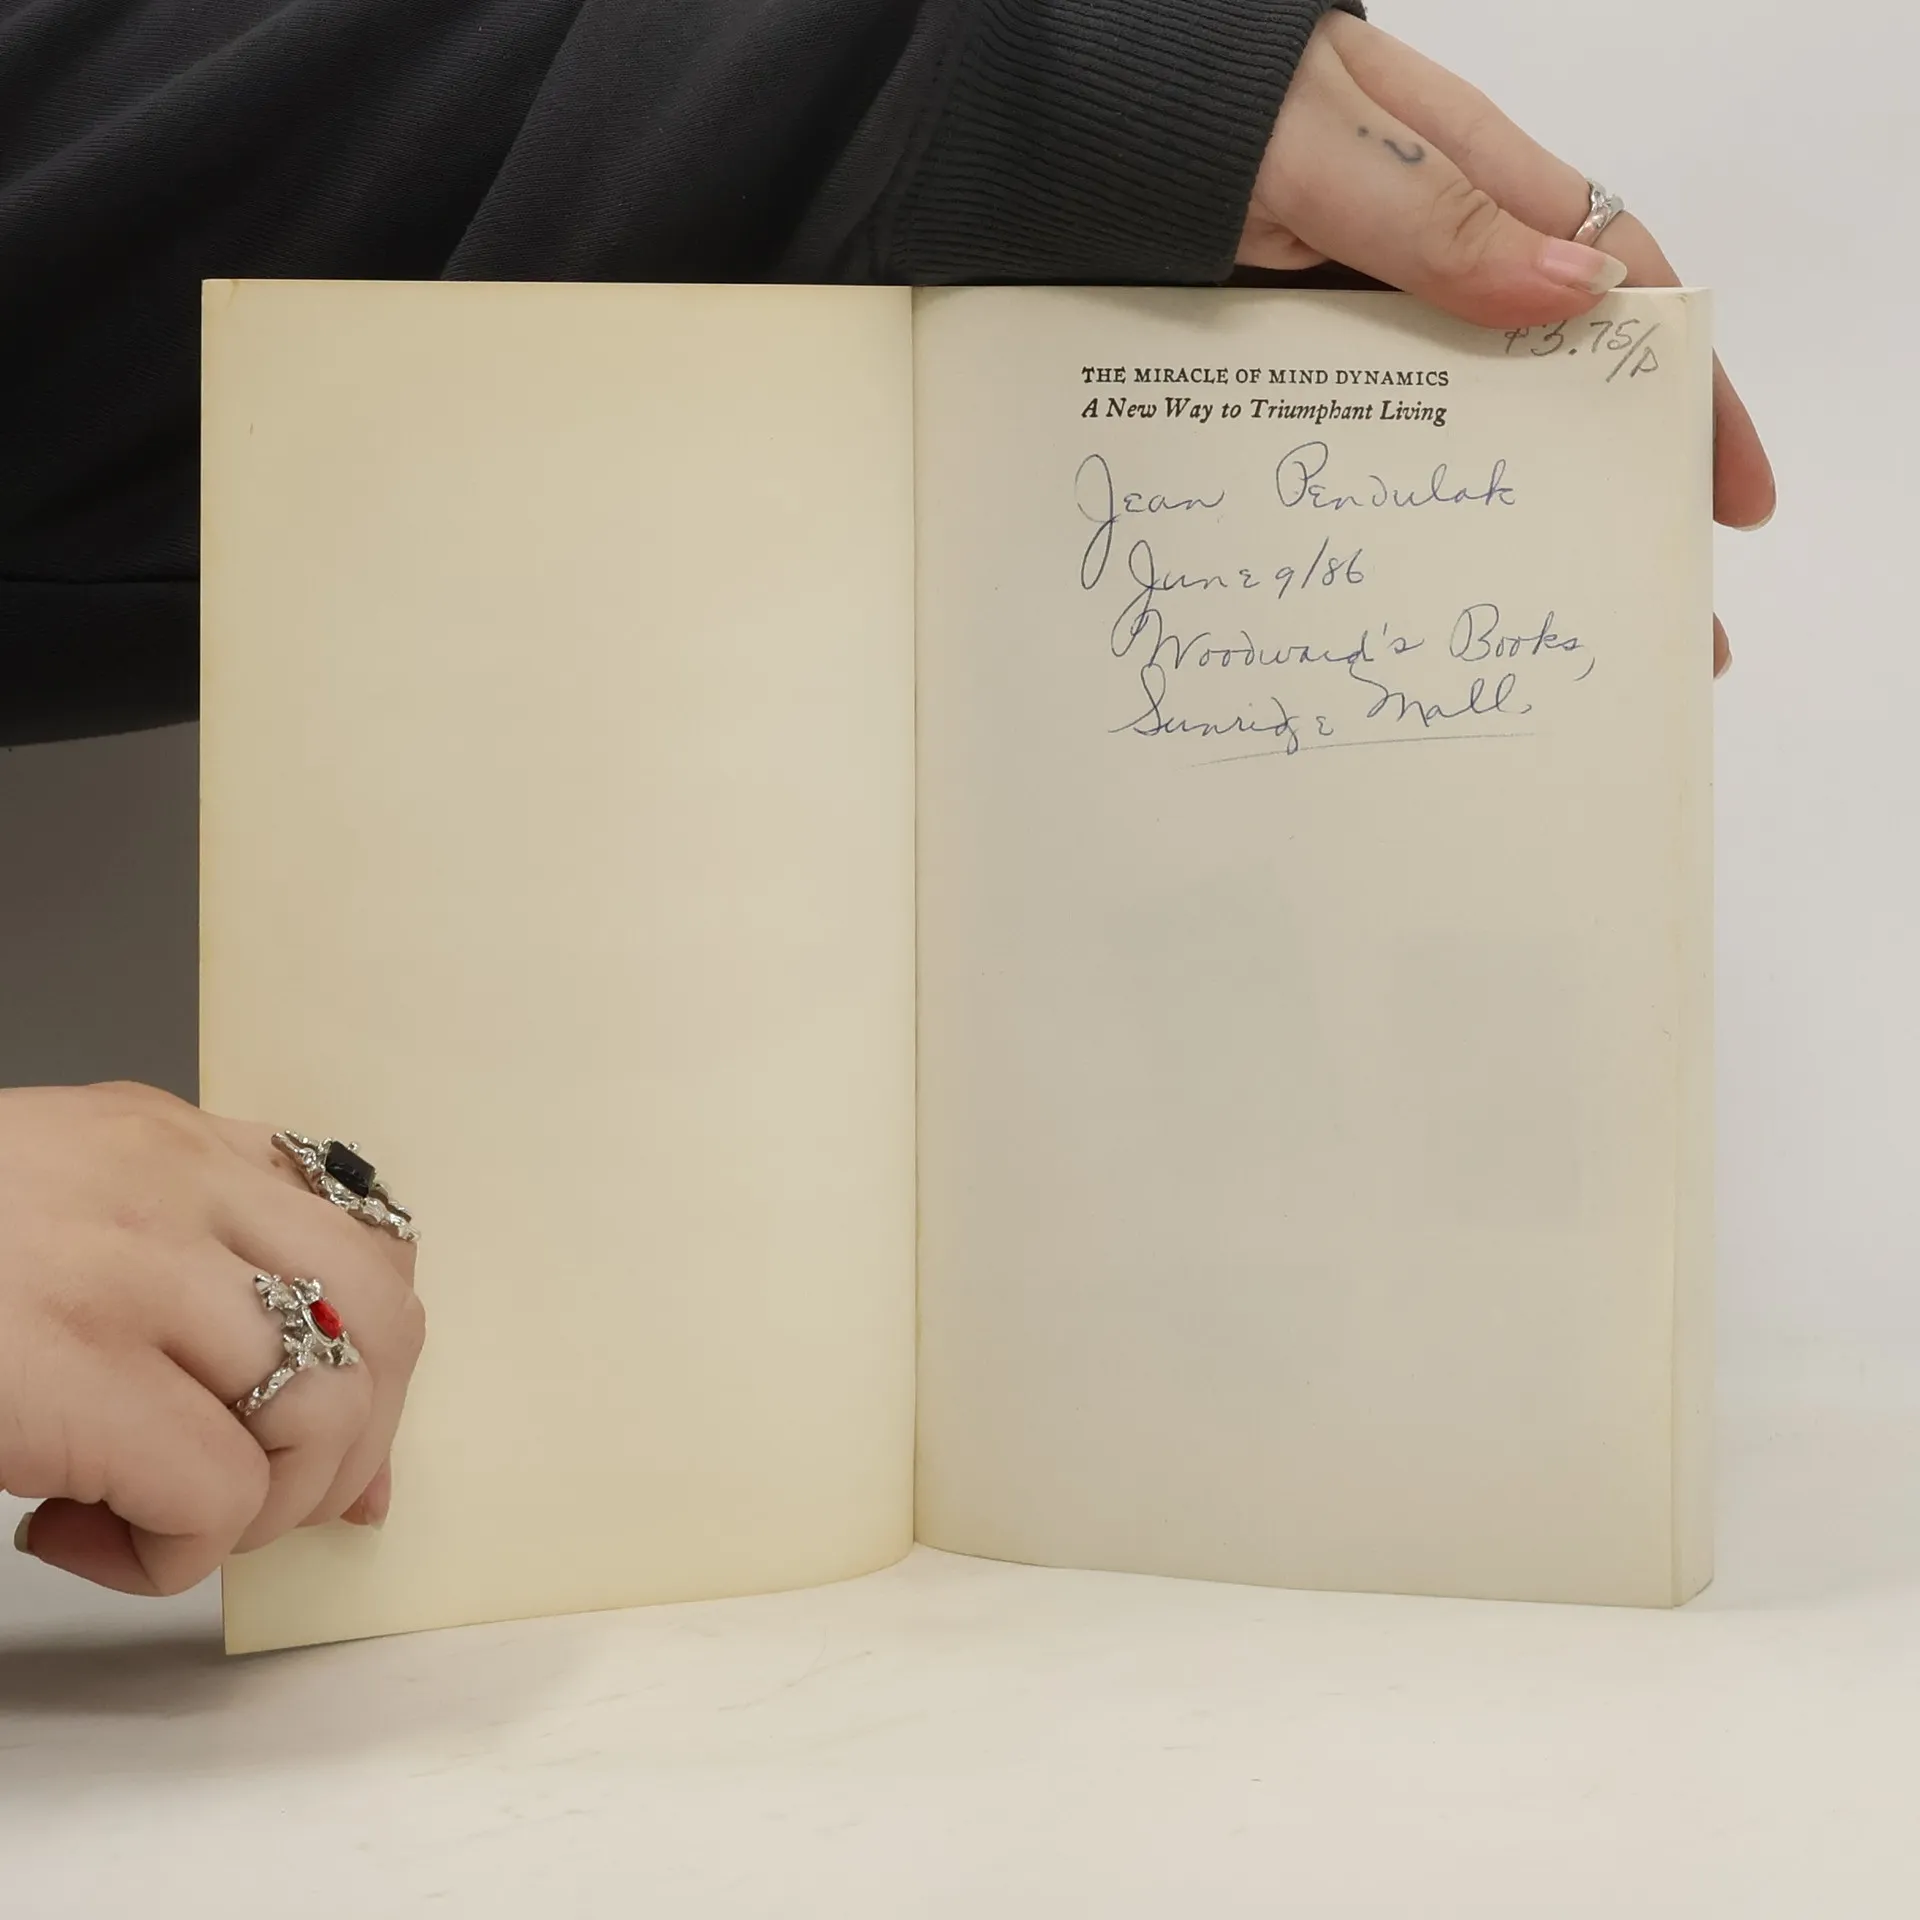 $3.75/P
THE MIRACLE OF MIND DYNAMICS
A New Way to Triumphant Living
Jean Pendulak
June 9/86
Woodward's Books,
Sunridge Mall